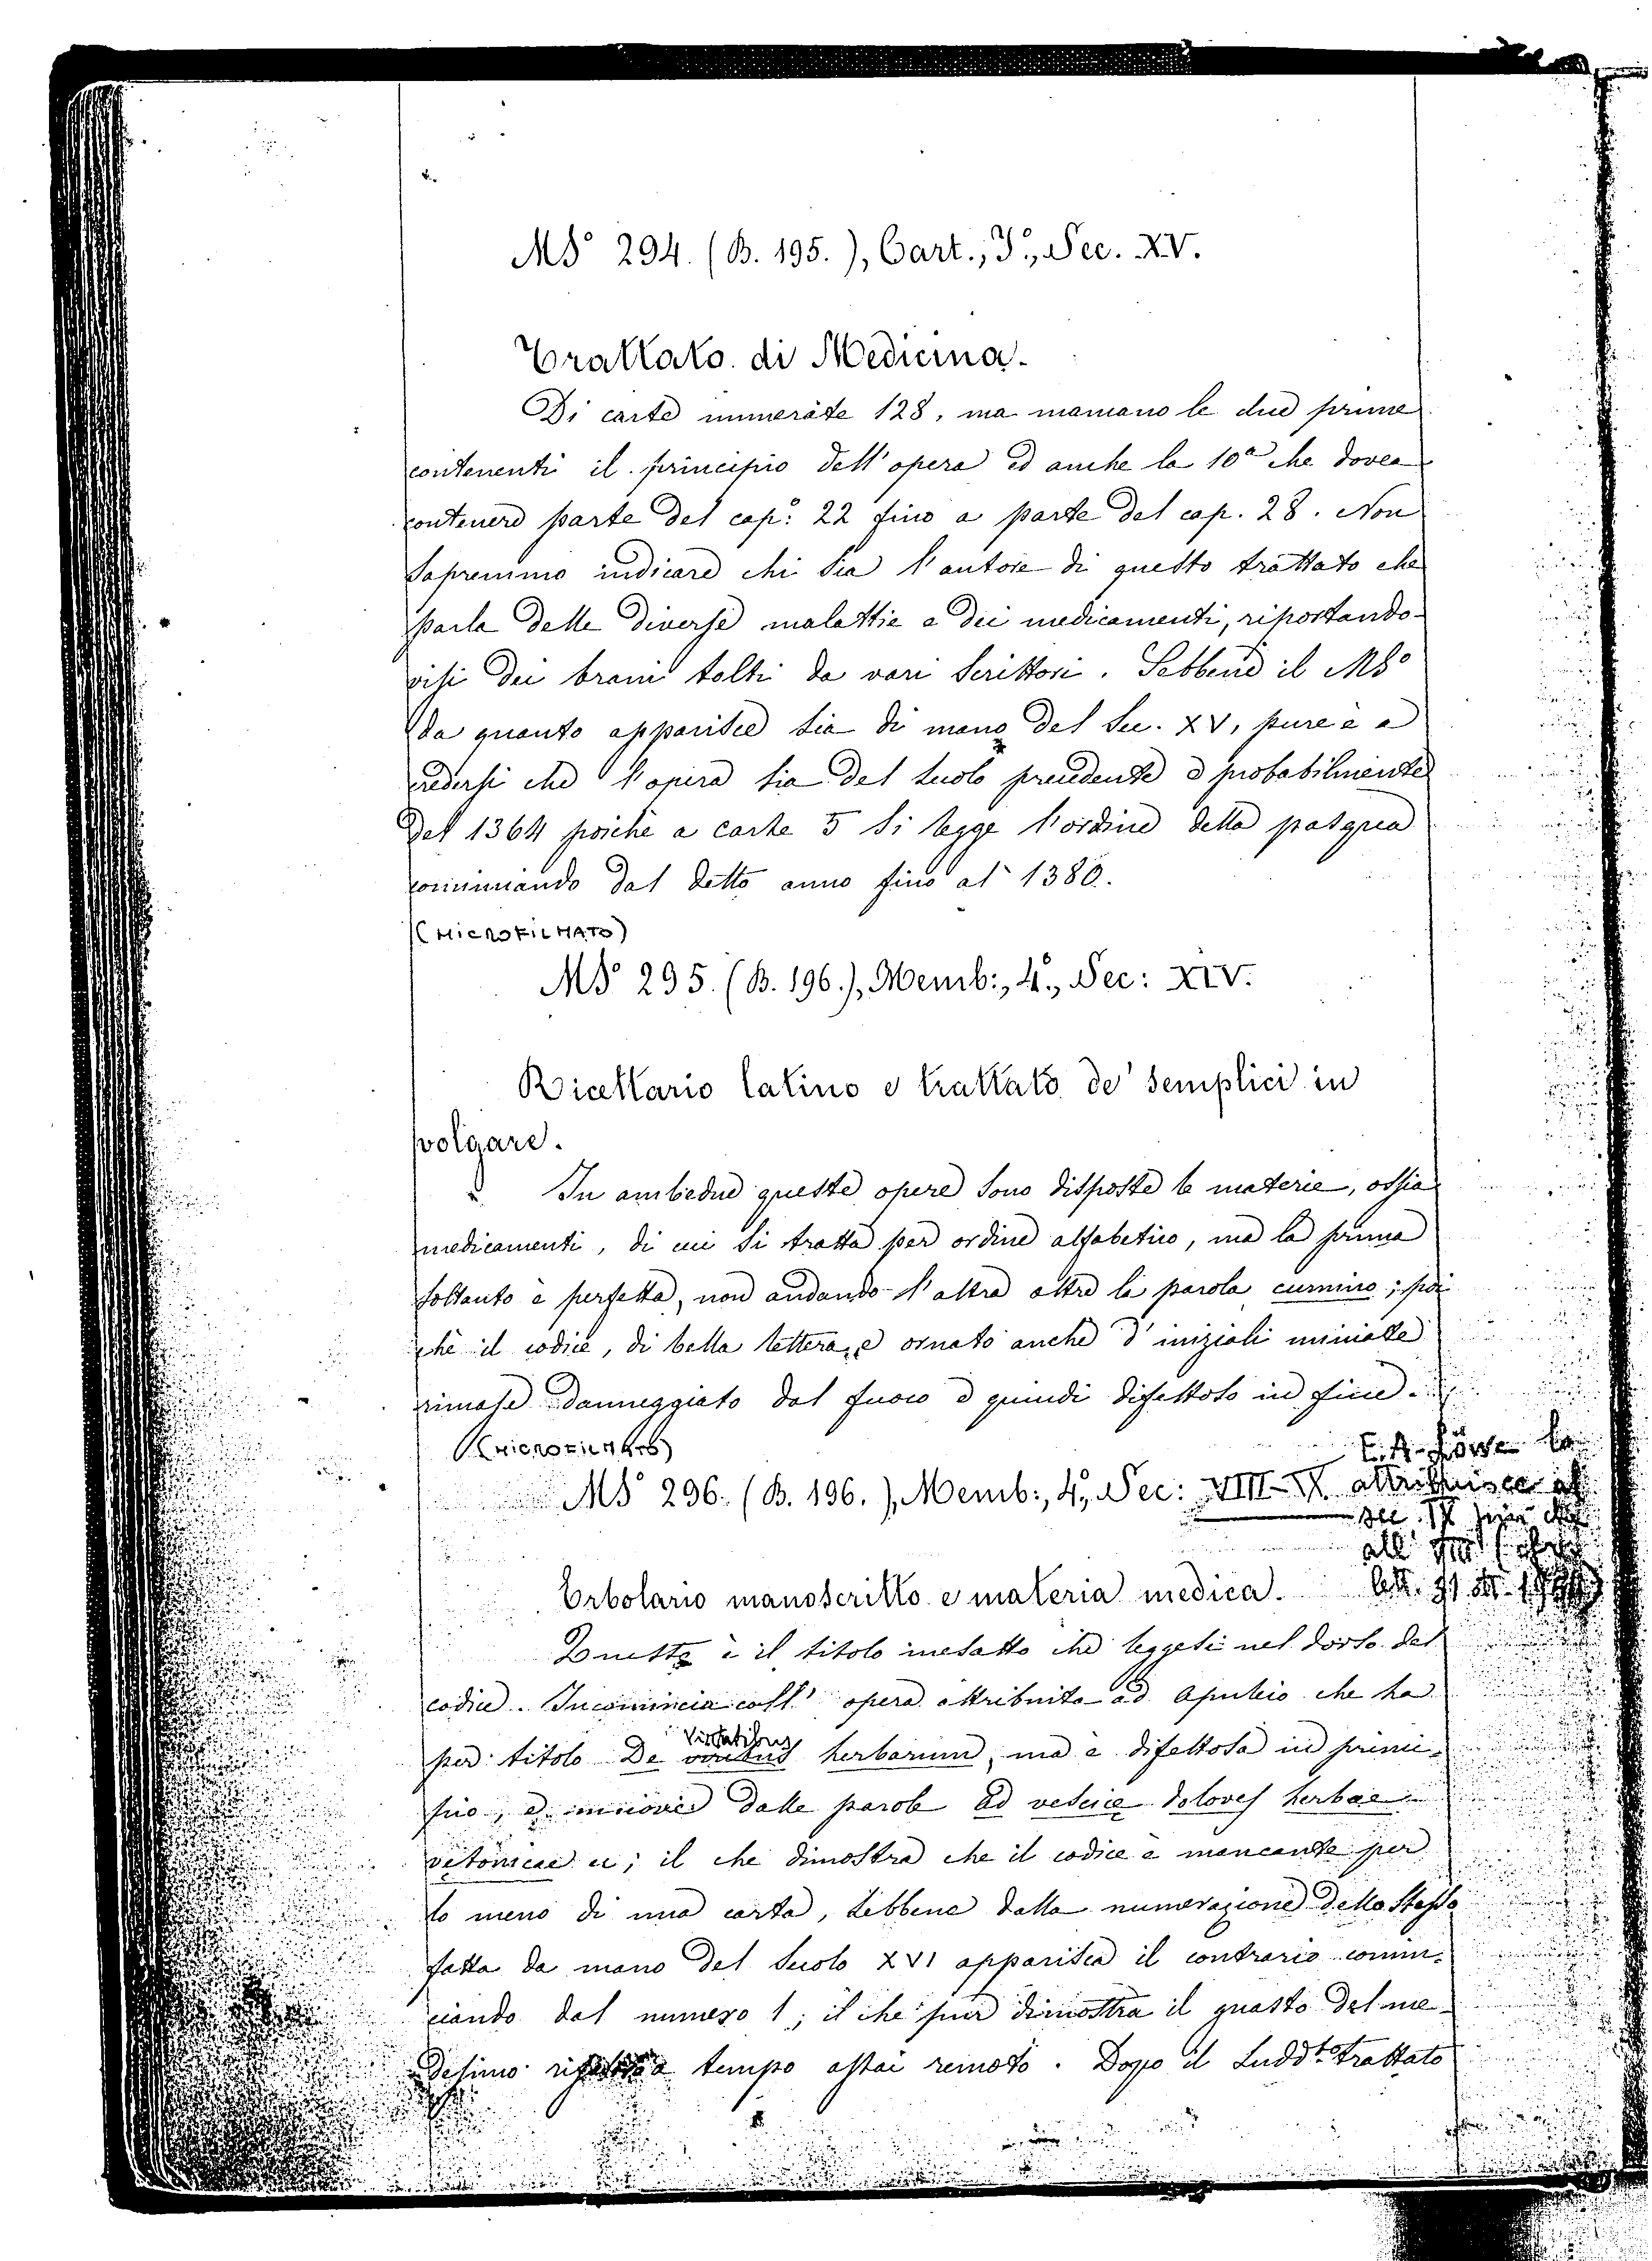 MSº 294. (B. 195.), Cart., Fº, Sec. XV.
Trattato di Medicina.
Di carte numerate 128, ma mancano le due prime
contenenti il principio dell'opera ed anche la 10ª che dovea
contenere parte del cap: 22 fino a parte del cap. 28. Non
sapremmo indicare chi sia l'autore di questo trattato che
parla delle diverse malattie e dei medicamenti, riportando-
visi dei brani tolti da vari scrittori. Sebbene il MSº
da quanto apparisce sia di mano del Sec. XV, pure è a
credersi che l'opera sia del secolo precedente e probabilmente
del 1364 poichè a carte 5 si legge l'ordine della pasqua
cominciando dal detto anno fino al 1380.
(MICROFILMATO)
MSº 295. (B. 196.), Memb:, 4º, Sec: XIV.
Ricettario latino e trattato de' semplici in
volgare.
In ambedue queste opere sono disposte le materie, ossia
medicamenti, di cui si tratta per ordine alfabetico, ma la prima
soltanto è perfetta, non andando l'altra oltre la parola cumino; poi
chè il codice, di bella lettera, e ornato anche d'iniziali miniate
rimase danneggiato dal fuoco e quindi difettoso in fine.
(MICROFILMATO)
MSº 296. (B. 196.), Memb:, 4º, Sec: VIII-IX
E. A. Löwe lo
attribuisce al
sec. IX più che
all' VIII
lett. 31
Erbolario manoscritto e materia medica.
Questo è il titolo inesatto che leggesi nel dorso del
codice. Incomincia coll' opera attribuita ad Apuleio che ha
Virtutibus
per titolo De herbarum, ma è difettosa in princi-
pio, e dalle parole ad vesice dolores herbae
vetonicae ec; il che dimostra che il codice è mancante per
lo meno di una carta, sebbene dalla numerazione dello stesso
fatta da mano del secolo XVI apparisca il contrario comin-
ciando dal numero 1; il che pur dimostra il guasto del me-
desimo tempo assai remoto. Dopo il sudd.to trattato